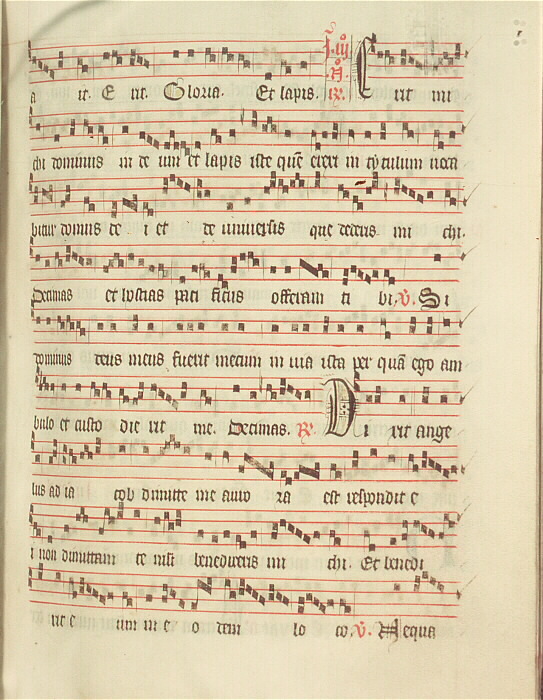 a it. E rit. Gloria. Et lapis. R. E rit mi
chi dominus in de um et lapis iste quē erexi in tytulum voca
bitur domus de i et de universis que dederis mi chi.
Decimas et hostias paci ficas offeram ti bi. V. Si
dominus deus meus fuerit mecum in via ista per quā ego am
bulo et custo die rit me. Decimas. R. Di xit ange
lus ad ia cob dimitte me auro ra est respondit e
i non dimittam te nisi benedixeris mi chi. Et benedi
xit e um in e o dem lo co. V. Cumque